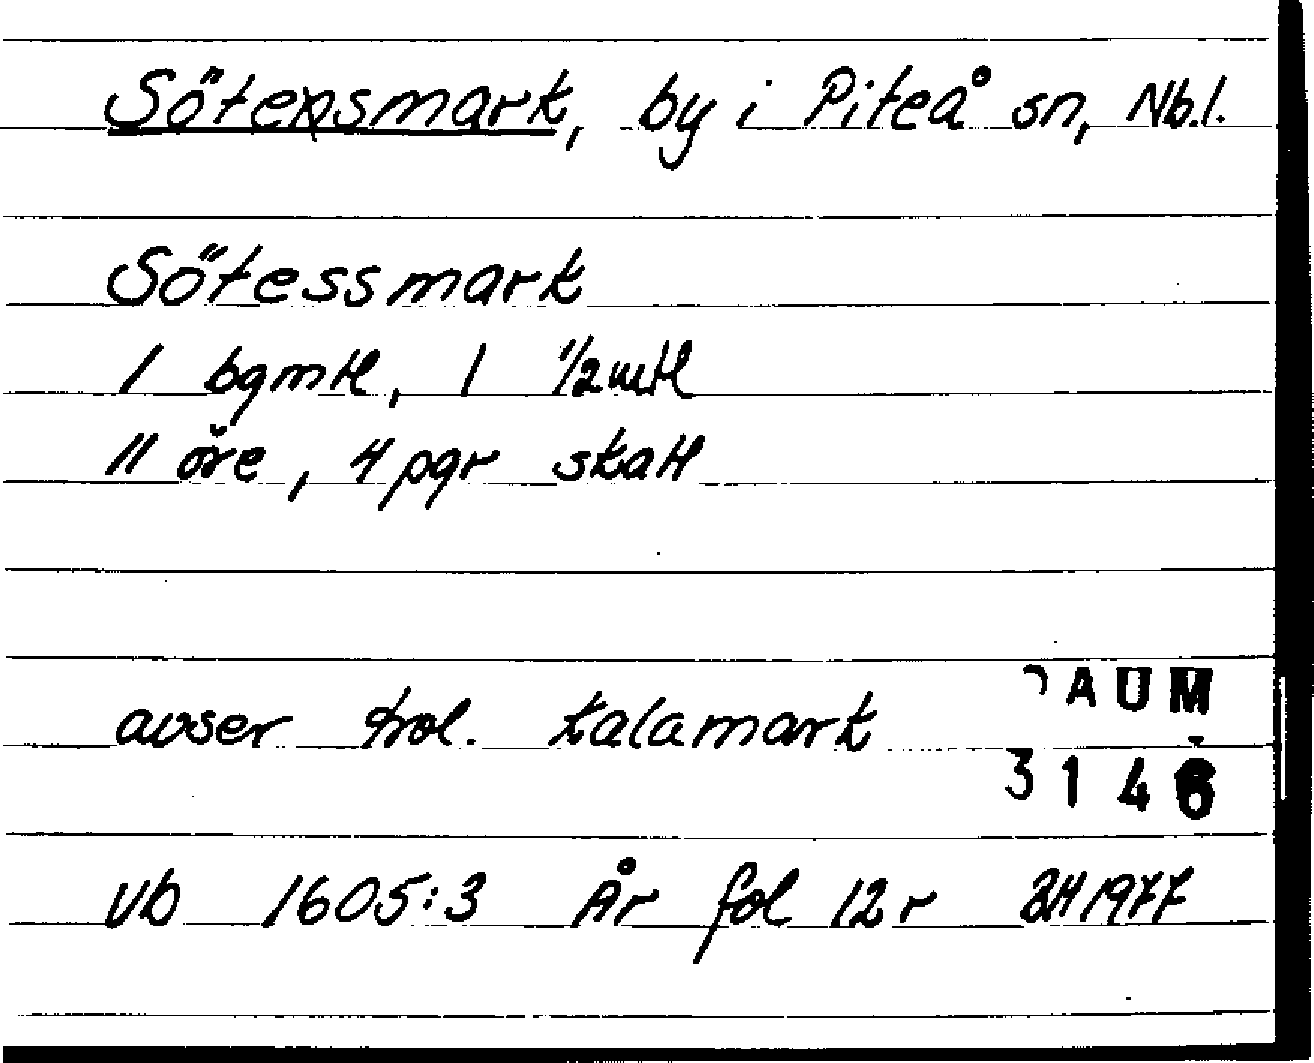 Sötensmark, by i Piteå sn, Nb.l.
Sötessmark
1 bgmtl, 1 ½ mtl
11 öre, 4 pgr skatt
avser trol. Kalamark
DAUM
3146
Vb 1605:3 Är fol 12 r BH 1977